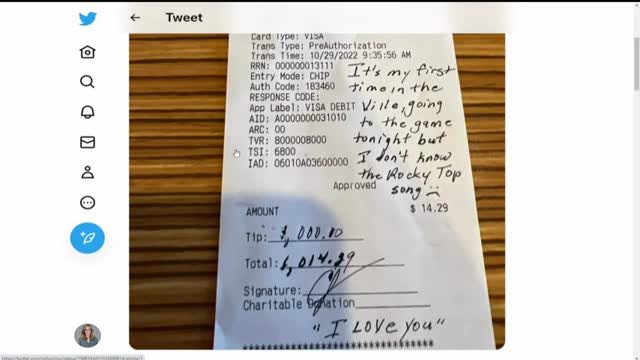 Tweet
Card Type: VISA
Trans Type: PreAuthorization
Trans Time: 10/29/2022 9:35:56 AM
RRN: 000000013111
Entry Mode: CHIP
Auth Code: 183460
RESPONSE CODE:
App Label: VISA DEBIT
AID: A0000000031010
ARC: 00
TVR: 8000008000
TSI: 6800
IAD: 06010A03600000
It's my first
time in the
Ville, going
to the game
tonight but
I don't know
the Rocky Top
song
Approved
$ 14.29
AMOUNT
Tip: 1,000.00
Total: 1,014.29
Signature:
Charitable Donation
"I Love you"